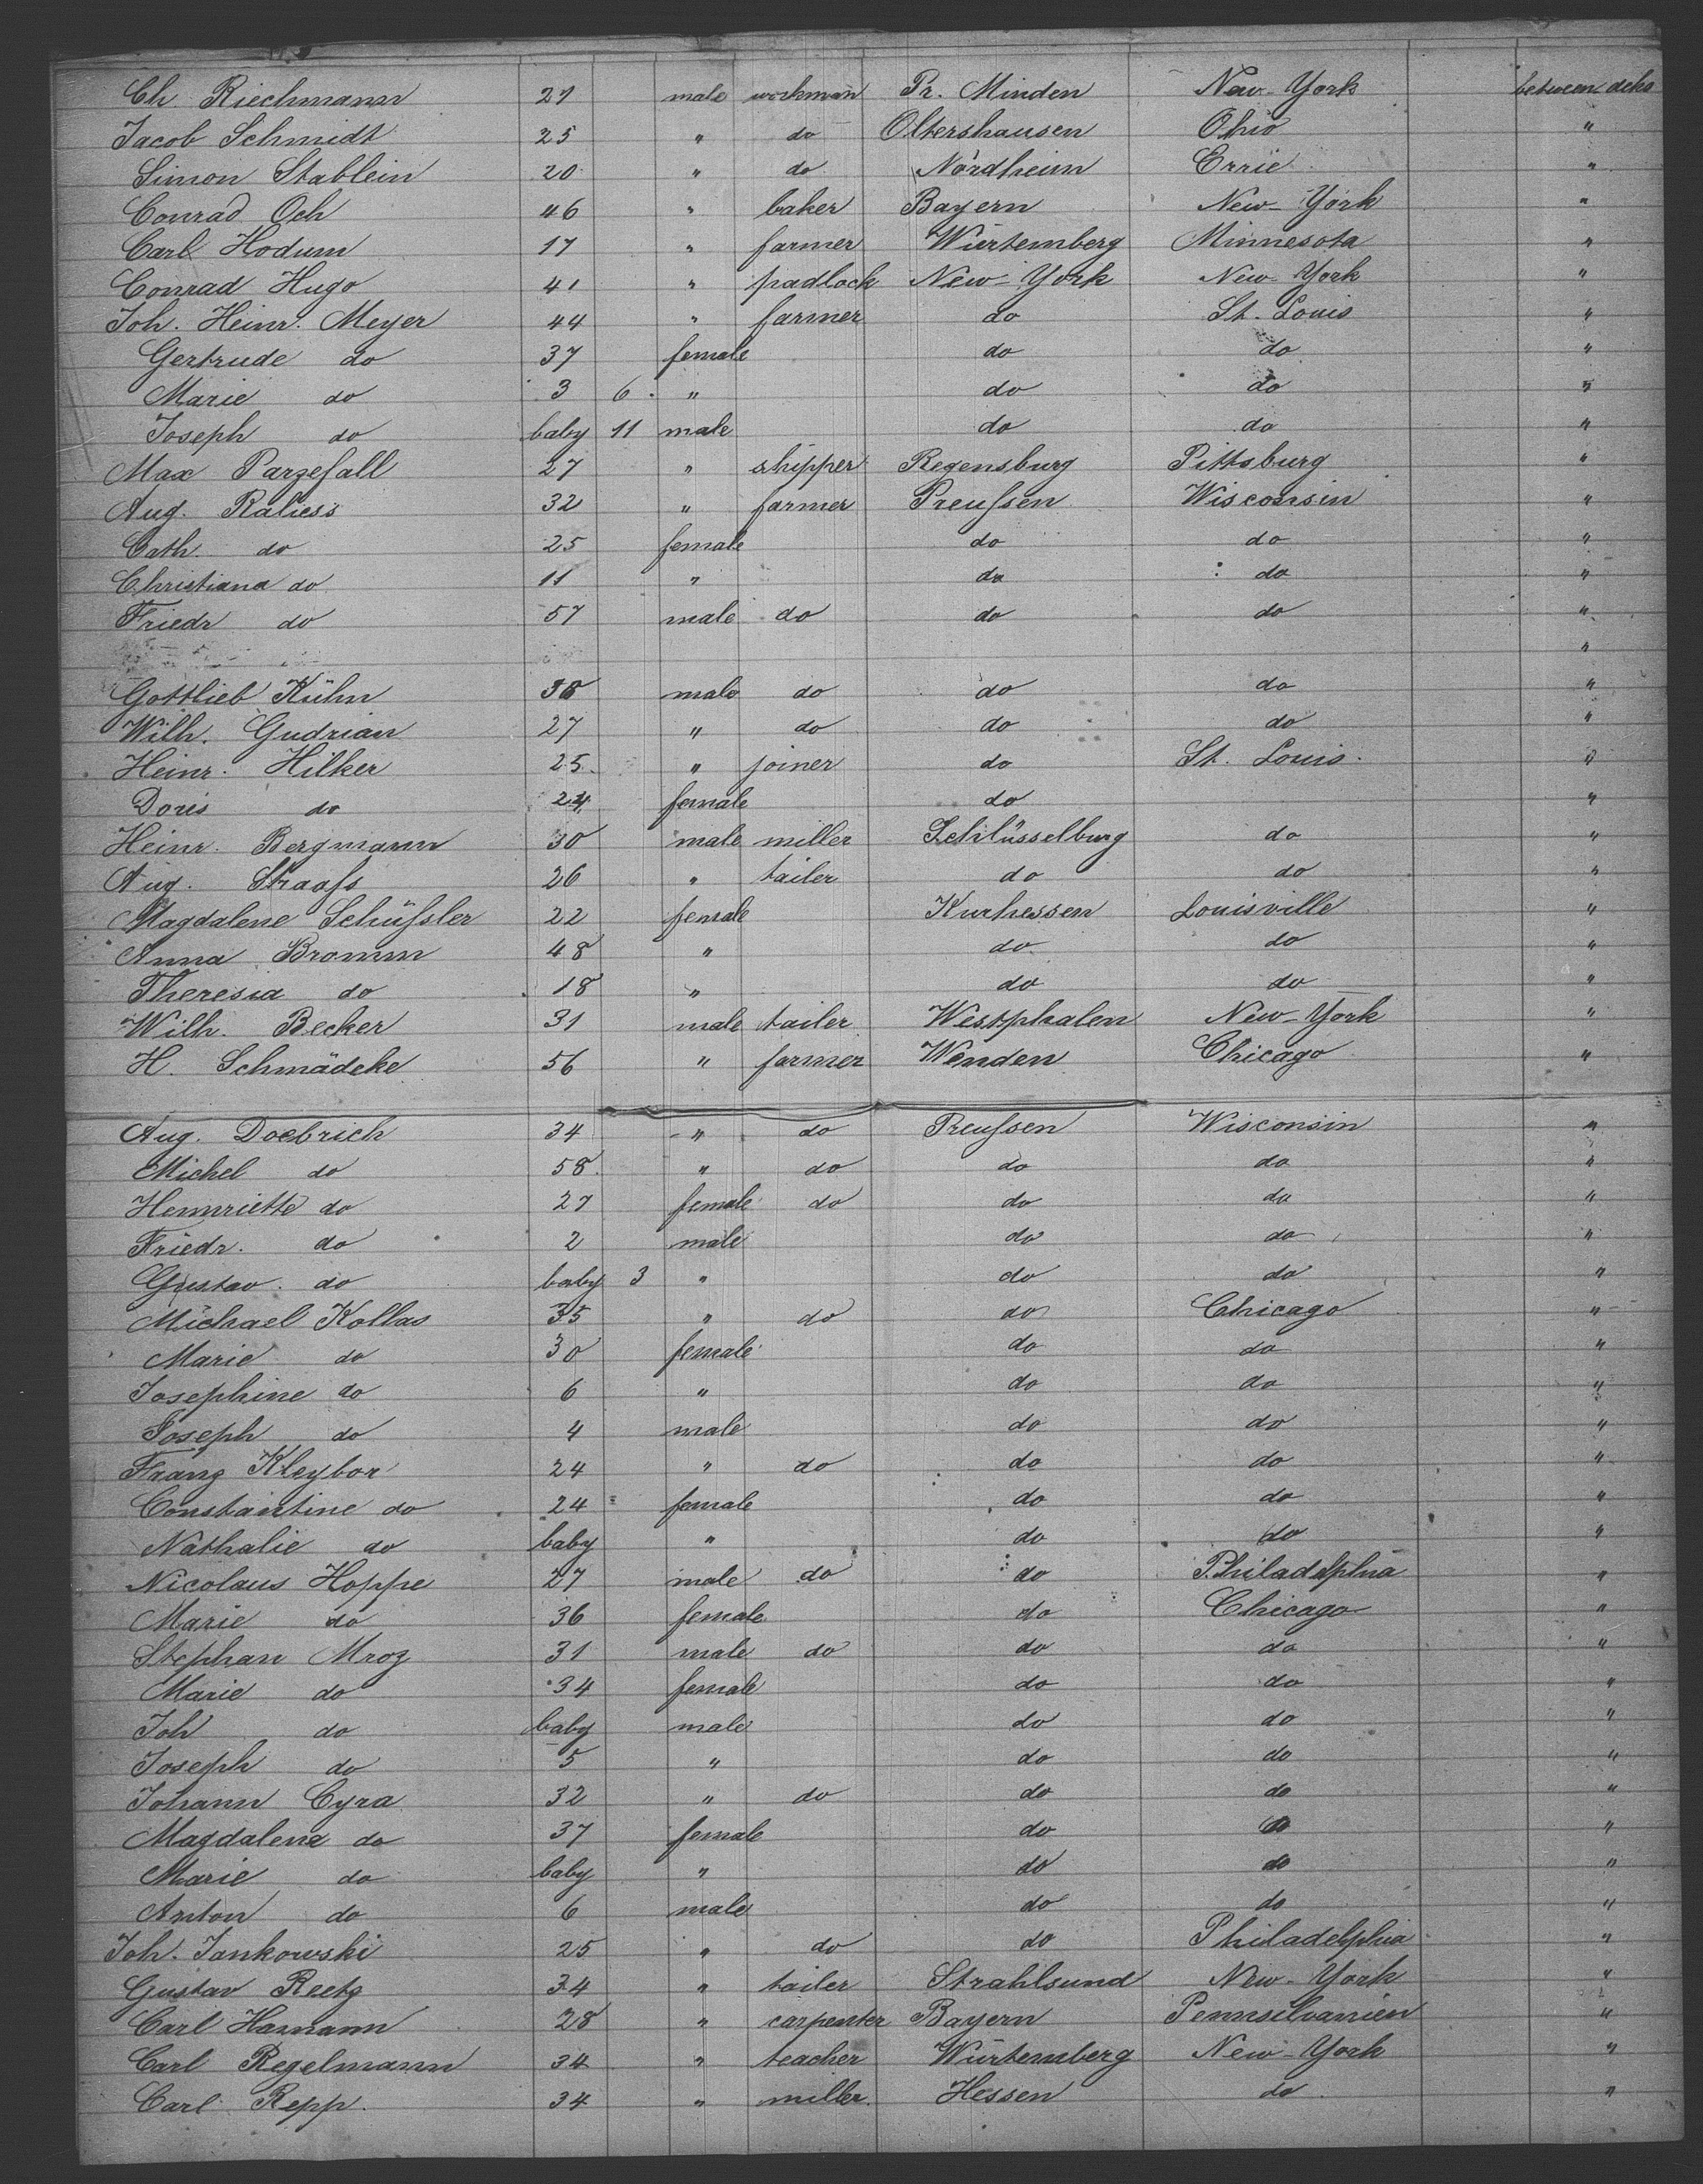 Ch Riechmann 27 male workman Pr. Minden New-York between deks
Jacob Schmidt 25 " do Oltershausen Ohio "
Simon Stablein 20 " do Nordheim Errie "
Conrad Och 46 " baker Bayern New-York "
Carl Hodum 17 " farmer Würtemberg Minnesota "
Conrad Hugo 41 " padlock New-York New-York "
Joh. Heinr. Meyer 44 " farmer do St. Louis "
Gertrude do 37 female do do "
Marie do 3 6. " do do "
Joseph do baby 11 male do do "
Max Parzefall 27 " shipper Regensburg Pittsburg "
Aug. Raliess 32 " farmer Preußen Wisconsin "
Cath. do 25 female do do "
Christiana do 11 " do do "
Friedr do 57 male do do do "
"
Gottlieb Kühn 38 male do do do "
Wilh. Gudrian 27 " do do do "
Heinr. Hilker 25. " joiner do St. Louis. "
Doris do 24 female do "
Heinr. Bergmann 30 male miller Schlüsselburg do "
Aug. Straaß 26 " tailer do do "
Magdalene Schüßler 22 female Kurhessen Louisville "
Anna Bromm 48 " do do "
Theresia do 18 " do do "
Wilh. Becker 31 male tailer Westphalen New-York "
H. Schmädeke 56 " farmer Wenden Chicago "
Aug. Doebrich 34 " do Preußen Wisconsin "
Michel do 58. " do do do "
Hennriette do 27 female do do do "
Friedr. do 2 male do do "
Gustav. do baby 3 " do do "
Michael Kollas 35 " do do Chicago "
Marie do 30 female do do "
Josephine do 6 " do do "
Joseph do 4 male do do "
Franz Kleybor 24 " do do do "
Constantine do 24 female do do "
Nathalie do baby " do do "
Nicolaus Hoppe 27 male do do Philadelphia "
Marie do 36 female do Chicago "
Stephan Mroz 31 male do do do "
Marie do 34 female do do "
Joh do baby male do do "
Joseph do 5 " do do "
Johann Cyra 32 " do do do "
Magdalena do 37 female do do "
Marie do baby " do do "
Anton do 6 male do do "
Joh. Jankowski 25 " do do Philadelphia "
Gustav Reetz 34 " tailer Strahlsund New-York "
Carl Hamann 28 " carpenter Bayern Pennsilvanien "
Carl Regelmann 34 " teacher Würtemberg New-York "
Carl Repp. 34 " miller. Hessen do "